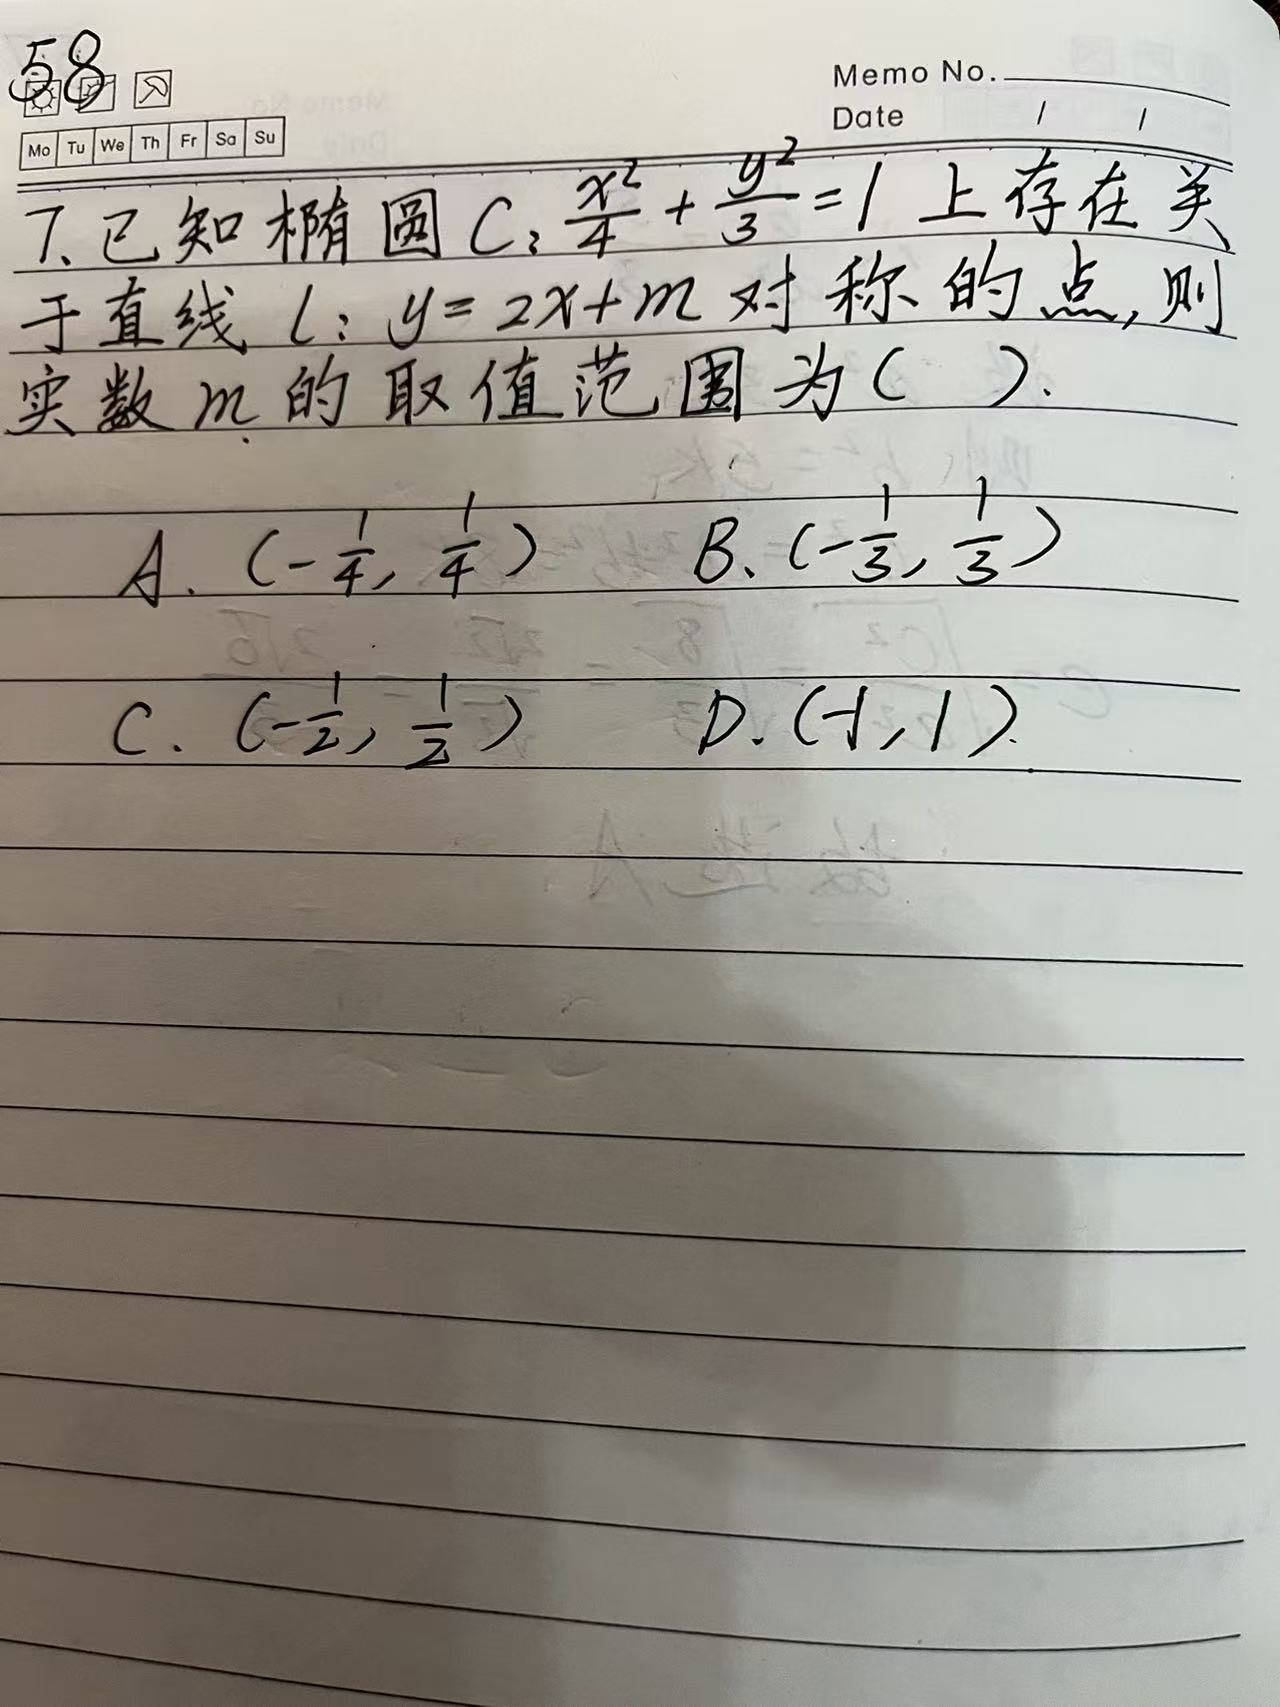 58
Memo No.
Mo Tu We Th Fr Sa Su
Date / /
7. 已知椭圆C: x²/4 + y²/3 = 1 上存在关
于直线 l: y = 2x+m 对称的点, 则
实数 m 的取值范围为( ).
A. (-1/4, 1/4) B. (-1/3, 1/3)
C. (-1/2, 1/2) D. (-1, 1).